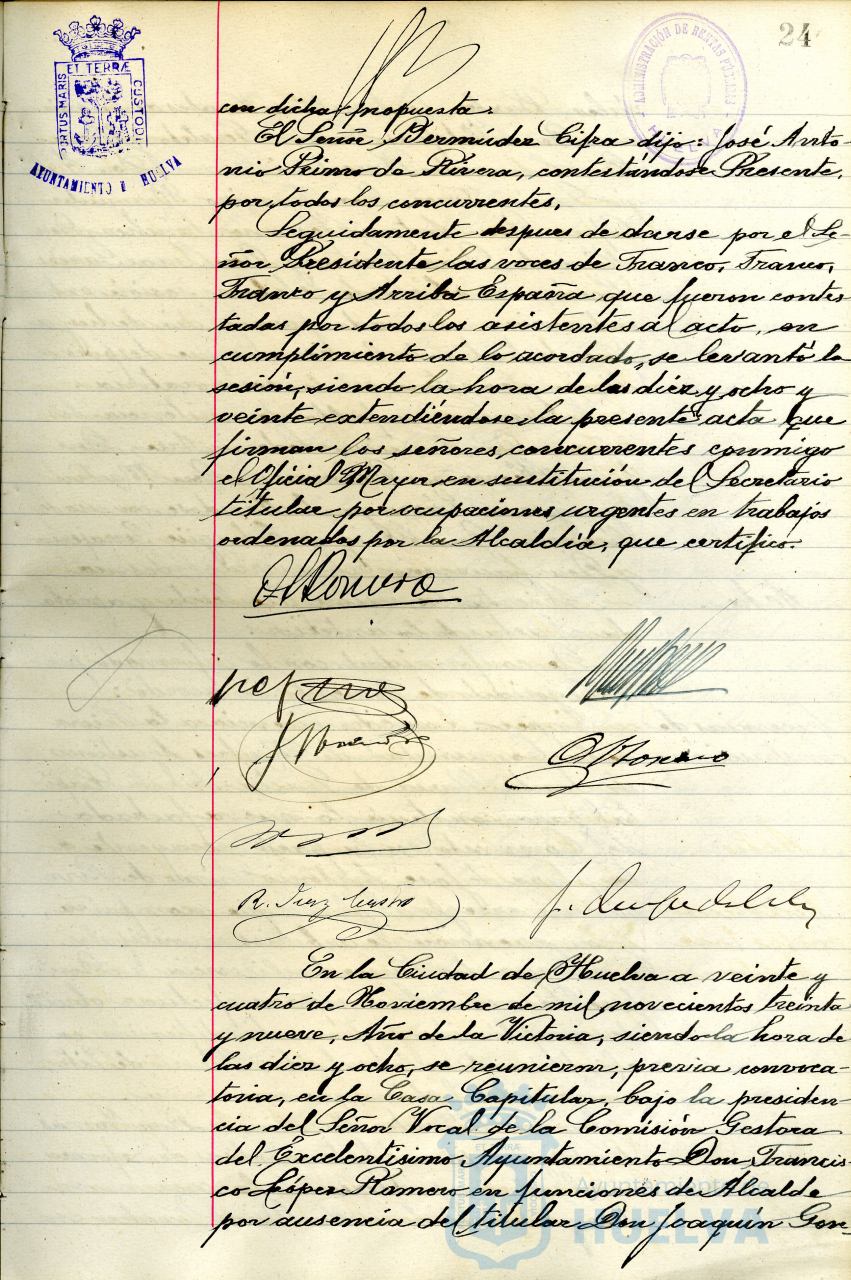 24
ET TERRÆ
PORTUS MARIS
CUSTODI
AYUNTAMIENTO D HUELVA
ADMINISTRACIÓN DE RENTAS PÚBLICAS
con dicha propuesta.
El Señor Bermúdez Cifra dijo: José Anto-
nio Primo de Rivera, contestándose Presente,
por todos los concurrentes.
Seguidamente despues de darse por el Se-
ñor Presidente las voces de Franco, Franco,
Franco y Arriba España que fueron contes
tadas por todos los asistentes al acto, en
cumplimiento de lo acordado, se levantó la
sesión, siendo la hora de las diez y ocho y
veinte extendiéndose la presente acta que
firman los señores concurrentes conmigo
el Oficial Mayor en sustitución del Secretario
titular por ocupaciones urgentes en trabajos
ordenados por la Alcaldía, que certifico.
R. Diaz Castro
En la Ciudad de Huelva a veinte y
cuatro de Noviembre de mil novecientos treinta
y nueve, Año de la Victoria, siendo la hora de
las diez y ocho, se reunieron, previa convoca-
toria, en la Casa Capitular, bajo la presiden-
cia del Señor Vocal de la Comisión Gestora
del Excelentisimo Ayuntamiento Don Francis-
co López Romero en funciones de Alcalde
por ausencia del titular Don Joaquín Gon-
Ayuntamiento de
HUELVA